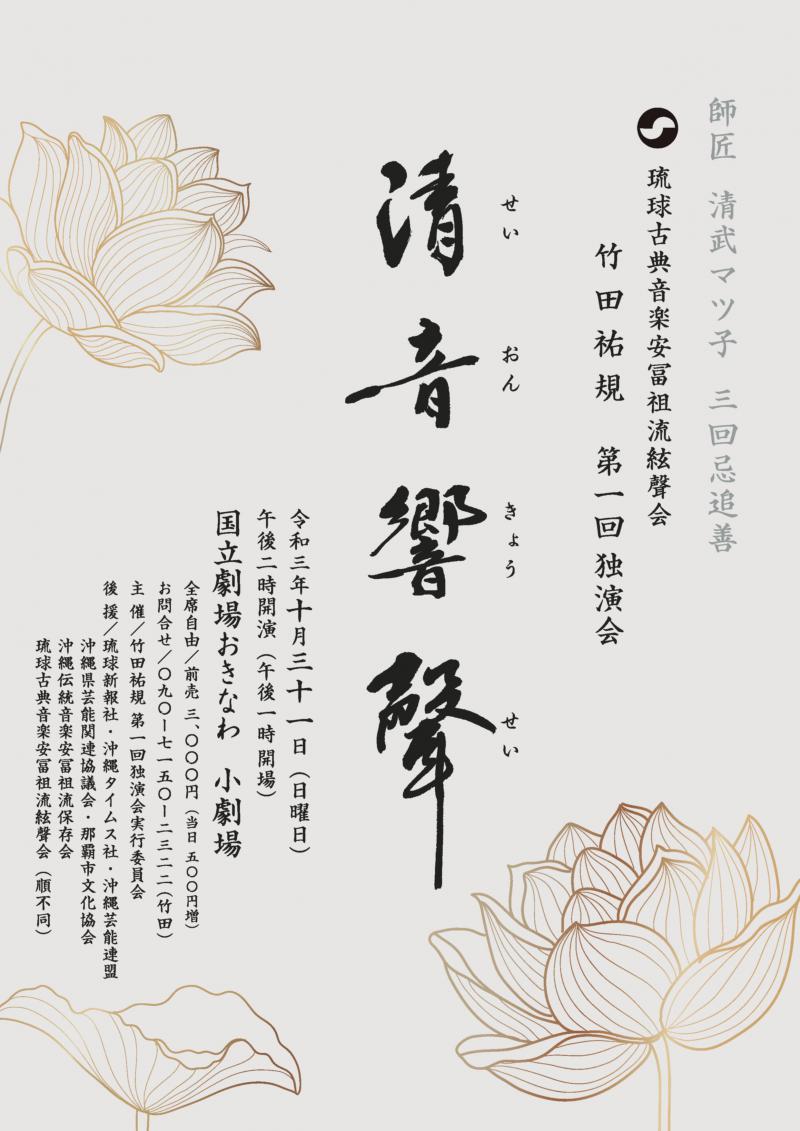 師匠 清武マツ子 三回忌追善
琉球古典音楽安冨祖流絃聲会
竹田祐規 第一回独演会
せい おん きょう せい
清音響聲
令和三年十月三十一日（日曜日）
午後二時開演（午後一時開場）
国立劇場おきなわ 小劇場
全席自由／前売 三、〇〇〇円（当日 五〇〇円増）
お問合せ／〇九〇ー七一五〇ー二三二二（竹田）
主 催／竹田祐規 第一回独演会実行委員会
後 援／琉球新報社・沖縄タイムス社・沖縄芸能連盟
沖縄県芸能関連協議会・那覇市文化協会
沖縄伝統音楽安冨祖流保存会
琉球古典音楽安冨祖流絃聲会（順不同）